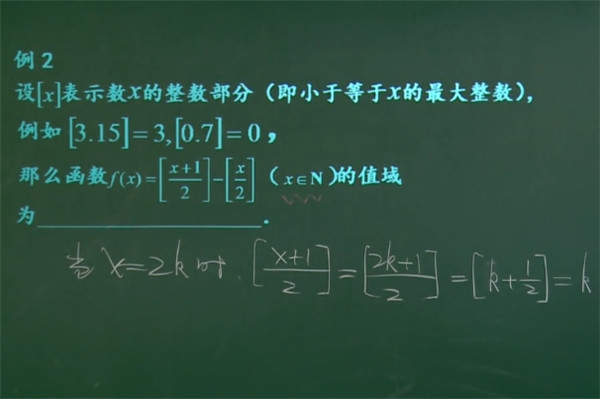 例 2
设[x]表示数x的整数部分（即小于等于x的最大整数），
例如 [3.15]=3,[0.7]=0，
那么函数f(x)=[(x+1)/2]-[x/2]（x∈N）的值域
为____________________.
当 x=2k时. [(x+1)/2]=[(2k+1)/2]=[k+1/2]=k